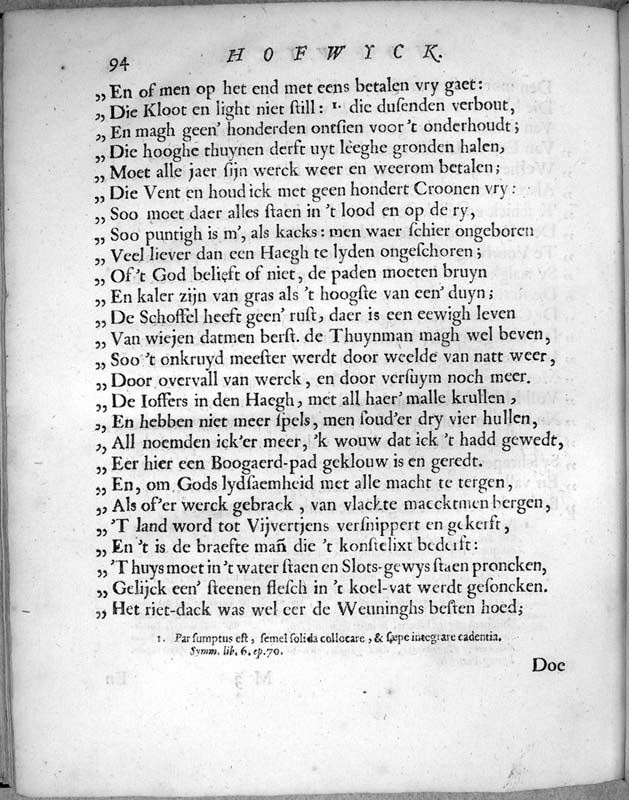 94 HOFWYCK.
„ En of men op het end met eens betalen vry gaet:
„ Die Kloot en light niet ſtill: 1. die duſenden verbout,
„ En magh geen' honderden ontſien voor 't onderhoudt;
„ Die hooghe thuynen derft uyt leeghe gronden halen,
„ Moet alle jaer ſijn werck weer en weerom betalen;
„ Die Vent en houd ick met geen hondert Croonen vry:
„ Soo moet daer alles ſtaen in 't lood en op de ry,
„ Soo puntigh is m', als kacks: men waer ſchier ongeboren
„ Veel liever dan een Haegh te lyden ongeſchoren;
„ Of 't God belieft of niet, de paden moeten bruyn
„ En kaler zijn van gras als 't hoogſte van een' duyn;
„ De Schoffel heeft geen' ruſt, daer is een eewigh leven
„ Van wiejen datmen berſt. de Thuynman magh wel beven,
„ Soo 't onkruyd meeſter werdt door weelde van natt weer,
„ Door overvall van werck, en door verſuym noch meer.
„ De Ioffers in den Haegh, met all haer' malle krullen,
„ En hebben niet meer ſpels, men ſoud'er dry vier hullen,
„ All noemden ick'er meer, 'k wouw dat ick 't hadd gewedt,
„ Eer hier een Boogaerd-pad geklouw is en geredt.
„ En, om Gods lydſaemheid met alle macht te tergen,
„ Als of'er werck gebrack, van vlackte maecktmen bergen,
„ 'T land word tot Vijvertjens verſnippert en gekerft,
„ En 't is de braefte mañ die 't konſtelixt bederft:
„ 'T huys moet in 't water ſtaen en Slots-gewys ſtaen proncken,
„ Gelijck een' ſteenen fleſch in 't koel-vat werdt geſoncken.
„ Het riet-dack was wel eer de Weuninghs beſten hoed;
1. Par ſumptus eſt, ſemel ſolida collocare, & ſæpe integrare cadentia.
Symm. lib. 6. ep. 70.
Doe